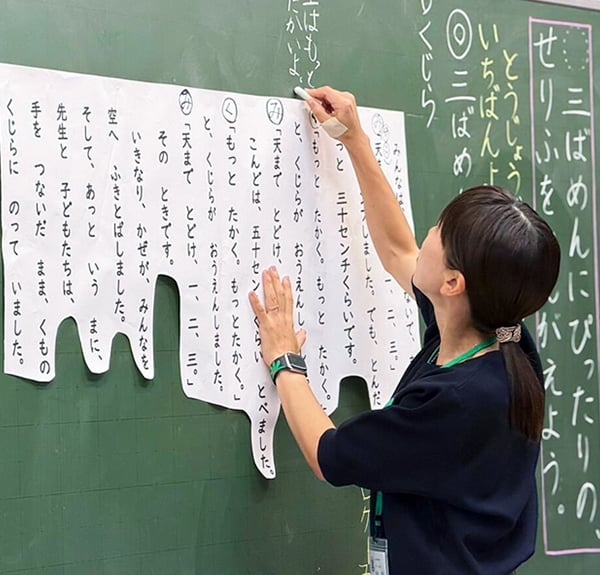 三ばめんにぴったりの、
せりふを んがえよう。
とうじょう
いちばんよ
◎三ばめ
くじら
はもっと
たかいよ。
みんなは
一、二、三。
しました。でも、とんだ
っと 三十センチくらいです。
「もっと たかく。もっと たかく。
と、くじらが おうえんし
み「天まで とどけ、一、
こんどは、五十セン くらい とべました。
く「もっと たかく。もっとたかく。」
と、くじらが おうえんしました。
み「天まで とどけ、一、二、三。」
その ときです。
いきなり、かぜが、みんなを
空へ ふきとばしました。
そして、あっと いう まに、
先生と 子どもたちは、
手を つないだ まま、くもの
くじらに のって いました。